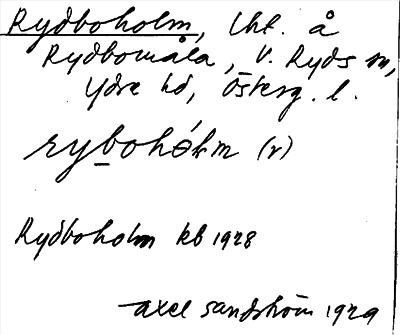 Rydboholm, lht. å
Rydbomåla, V. Ryds sn,
Ydre hd, Österg. l.
rybohólm (r)
Rydboholm kb 1928
Axel Sandström 1929